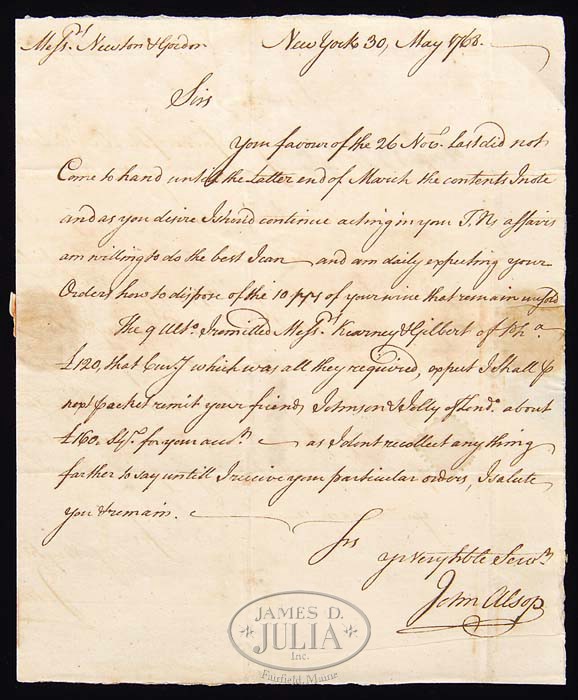 Messrs. Newton & Gordon New York 30, May 1763.
Sirs
Your favour of the 26 Novr. last did not
Come to hand untill the latter end of March the contents I note
and as you desire I should continue acting in your T. Ns affairs
am willing to do the best I can and am daily expecting your
Orders how to dispose of the 10 pps of your wine that remain unsold
The 9 Ulto. I remitted Messrs. Kearney & Gilbert of Pha.
£120, that Curry which was all they required, expect I shall
next packet remit your friends Johnson & Jolly of Lond. about
£160. Stg. for your acct. as I dont recollect any thing
farther to say untill I receive your particular orders, I salute
you & remain.
Sirs
yr very hble Servt.
John Alsop
JAMES D.
JULIA
Inc.
Fairfield, Maine